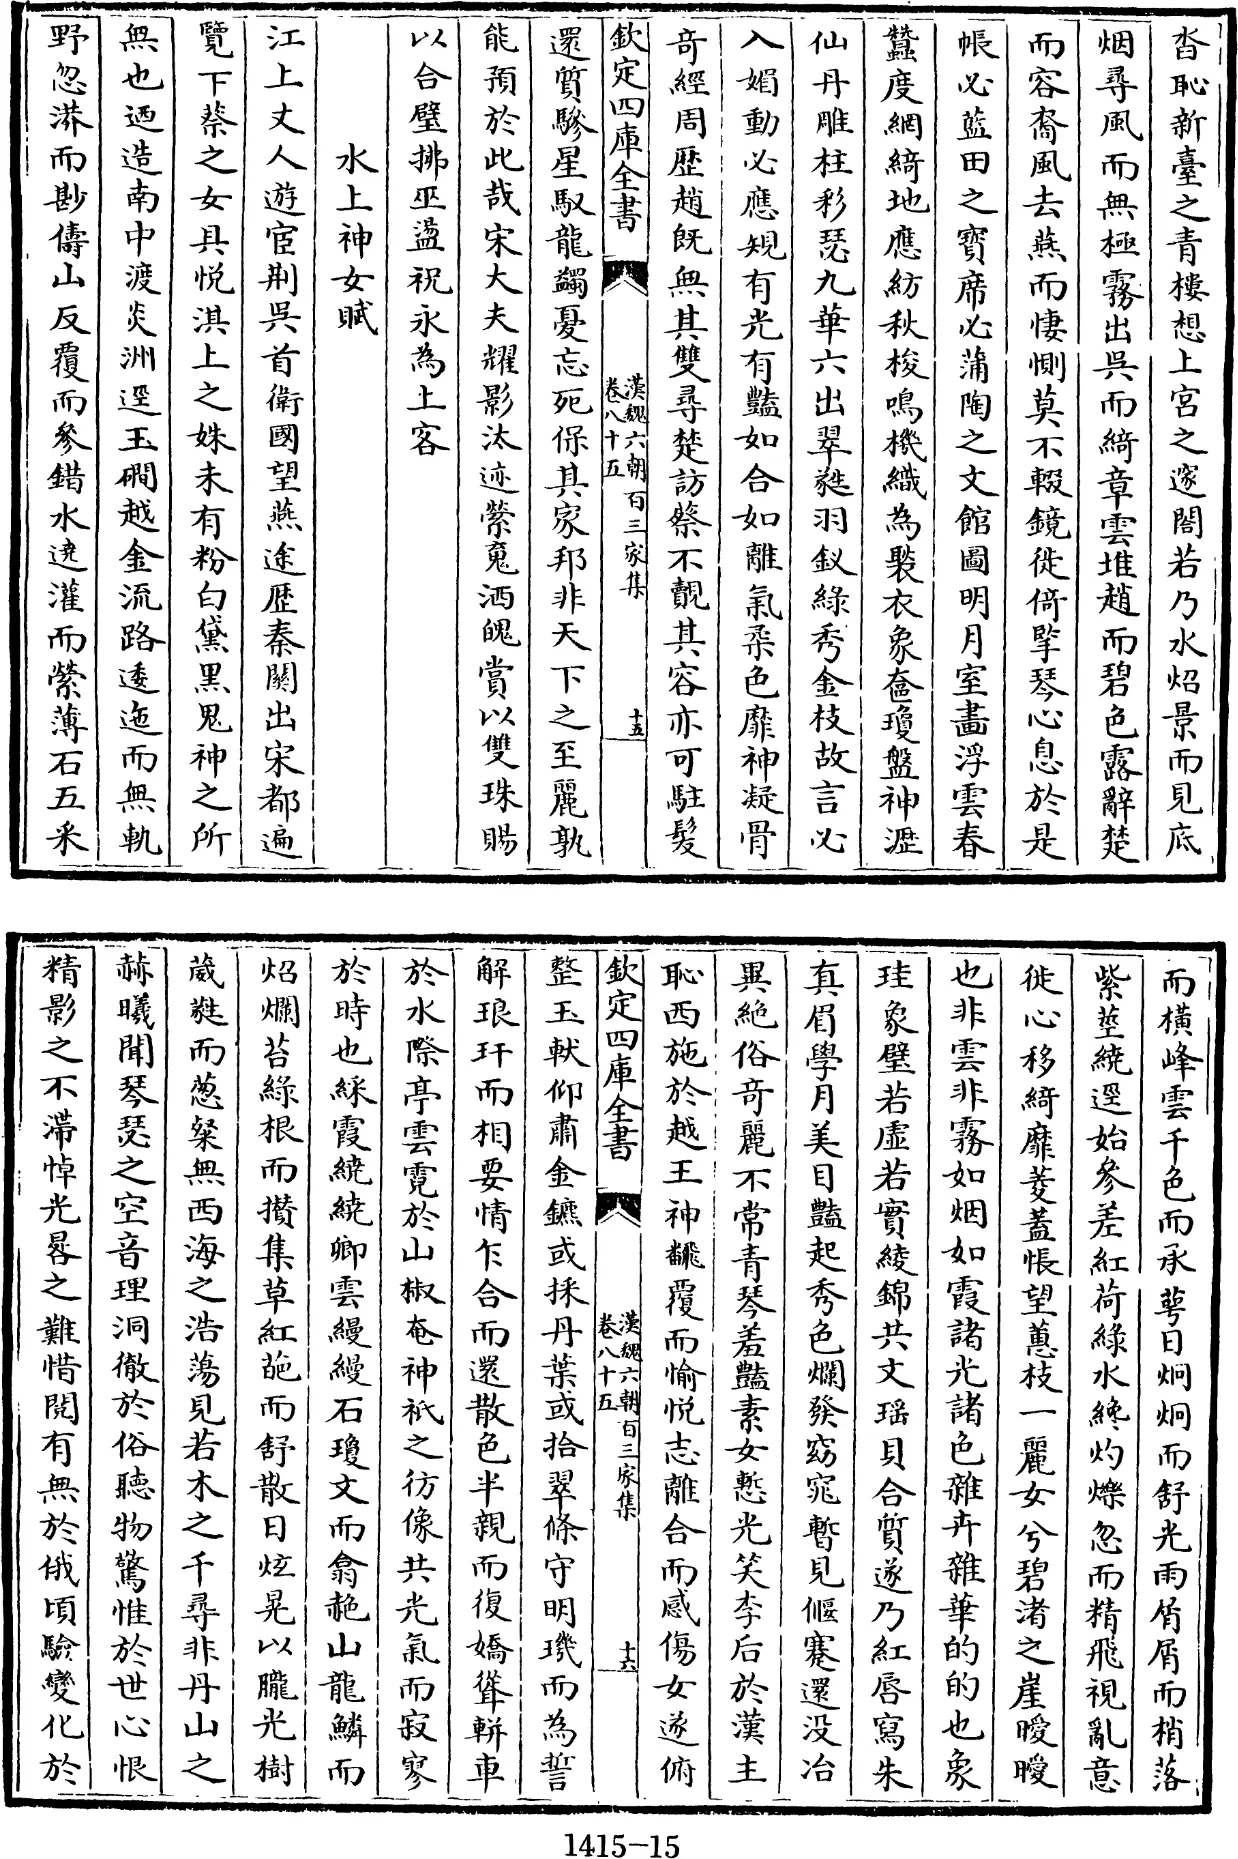 沓恥新臺之青樓想上宮之邃閤若乃水炤景而見底
烟尋風而無極霧出吳而綺章雲堆趙而碧色露辭楚
而容裔風去燕而悽惻莫不輟鏡徙倚掔琴心息於是
帳必藍田之寶席必蒲陶之文館圖明月室畫浮雲春
蠶度網綺地應紡秋梭鳴機織為褧衣象奩瓊盤神瀝
仙丹雕柱彩瑟九華六出翠蕤羽釵綠秀金枝故言必
入媚動必應規有光有豔如合如離氣柔色靡神凝骨
奇經周歷趙既無其雙尋楚訪蔡不覿其容亦可駐髮
欽定四庫全書
漢魏六朝百三家集
卷八十五
十五
還質驂星馭龍蠲憂忘死保其家邦非天下之至麗孰
能預於此哉宋大夫耀影汰迹縈䰟洒魄賞以雙珠賜
以合璧拂巫盪祝永為上客
水上神女賦
江上丈人遊宦荆吳首衛國望燕途歷秦關出宋都遍
覽下蔡之女具悅淇上之姝未有粉白黛黑鬼神之所
無也迺造南中渡炎洲逕玉磵越金流路逶迤而無軌
野忽漭而尠儔山反覆而參錯水遶灌而縈薄石五采
而橫峰雲千色而承萼日炯炯而舒光雨屑屑而梢落
紫莖繞逕始參差紅荷綠水纔灼爍忽而精飛視亂意
徙心移綺靡菱蓋悵望蕙枝一麗女兮碧渚之崖曖曖
也非雲非霧如烟如霞諸光諸色雜卉雜華的的也象
珪象璧若虛若實綾錦共文瑶貝合質遂乃紅唇寫朱
真眉學月美目豔起秀色爛發窈窕暫見偃蹇還没冶
異絶俗奇麗不常青琴羞豔素女慙光笑李后於漢主
恥西施於越王神翻覆而愉悅志離合而感傷女遂俯
欽定四庫全書
漢魏六朝百三家集
卷八十五
十六
整玉軑仰肅金鑣或採丹葉或拾翠條守明璣而為誓
解琅玕而相要情乍合而還散色半親而復嬌聳輧車
於水際亭雲霓於山椒奄神祇之彷像共光氣而寂寥
於時也綵霞繞繞卿雲縵縵石瓊文而翕赩山龍鱗而
炤爛苔綠根而攢集草紅葩而舒散日炫晃以朧光樹
葳蕤而蔥粲無西海之浩蕩見若木之千尋非丹山之
赫曦聞琴瑟之空音理洞徹於俗聽物驚惟於世心恨
精影之不滯悼光晷之難惜閱有無於俄頃驗變化於
1415-15